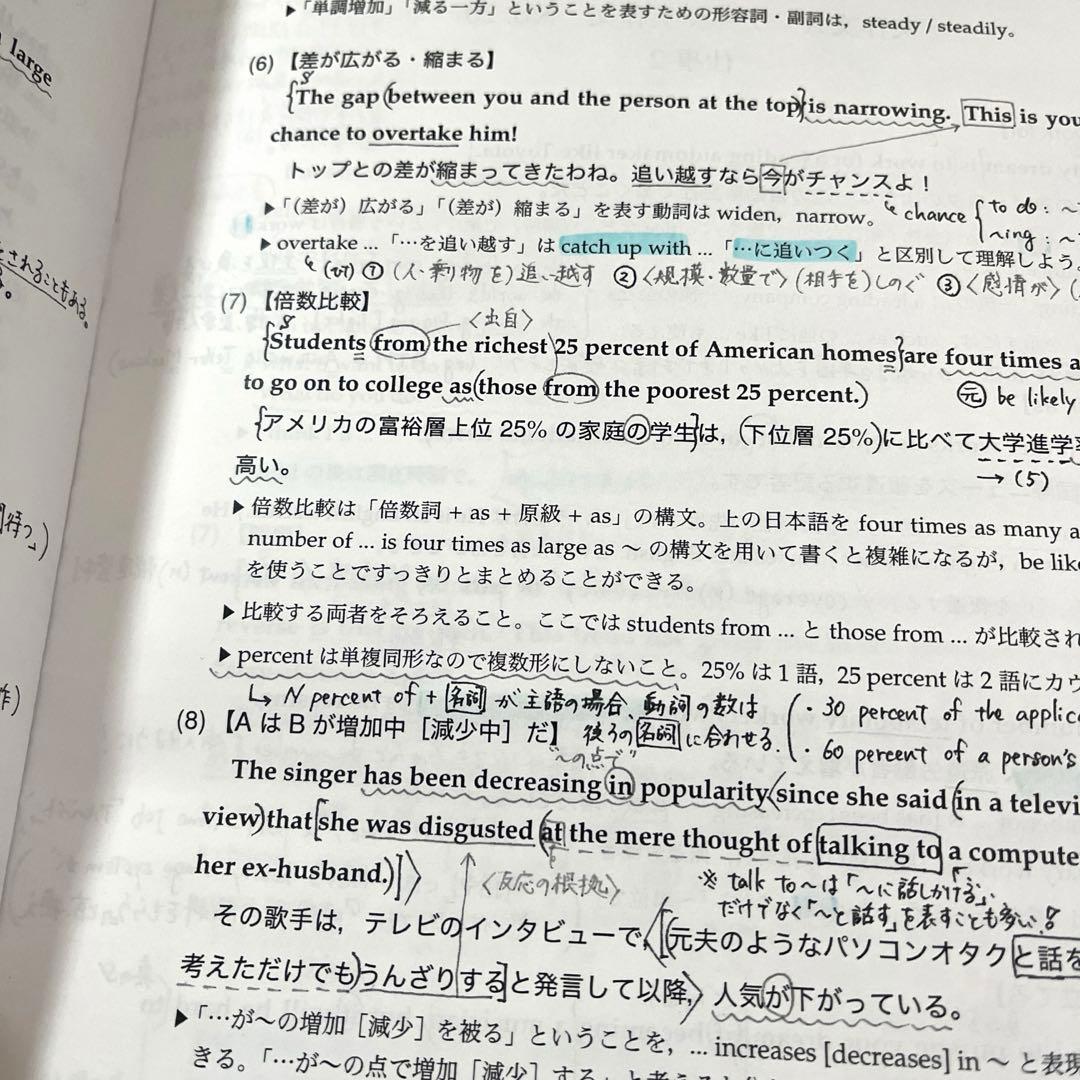 large
▶「単調増加」「減る一方」ということを表すための形容詞・副詞は，steady / steadily。
(6) 【差が広がる・縮まる】
S
{The gap (between you and the person at the top)} is narrowing. This is you
chance to overtake him!
トップとの差が縮まってきたわね。追い越すなら今がチャンスよ！
▶「(差が) 広がる」「(差が) 縮まる」を表す動詞は widen，narrow。
chance { to do : ~
~ing : ~
▶ overtake ... 「…を追い越す」は catch up with ... 「…に追いつく」と区別して理解しよう。
(vt) ① (人・乗物を) 追い越す ② 〈規模・数量で〉 (相手を) しのぐ ③ 〈感情が〉
されることもある。
(7) 【倍数比較】
〈出自〉
S
{Students from the richest 25 percent of American homes} are four times a
to go on to college as (those from the poorest 25 percent.)
元 be likely
{アメリカの富裕層上位 25% の家庭の学生}は，(下位層 25%)に比べて大学進学率
高い。
→ (5)
▶ 倍数比較は「倍数詞 + as + 原級 + as」の構文。上の日本語を four times as many a
number of ... is four times as large as ～ の構文を用いて書くと複雑になるが，be like
を使うことですっきりとまとめることができる。
▶ 比較する両者をそろえること。ここでは students from ... と those from ... が比較され
▶ percent は単複同形なので複数形にしないこと。25% は 1 語，25 percent は 2 語にカウ
↳ N percent of + 名詞 が主語の場合、動詞の数は
後ろの名詞に合わせる.
・30 percent of the applic
・60 percent of a person's
(8) 【A は B が増加中［減少中］だ】
"～の点で"
The singer has been decreasing in popularity 〈since she said (in a televi
view) that [she was disgusted (at the mere thought of talking to a compute
her ex-husband.)]〉
〈反応の根拠〉
※ talk to ～は「～に話しかける」
だけでなく「～と話す」を表すことも多い！
その歌手は，テレビのインタビューで，〈[(元夫のようなパソコンオタクと話を
考えただけでも)うんざりする]と発言して以降，〉人気が下がっている。
▶「…が～の増加［減少］を被る」ということを，... increases [decreases] in ～ と表現
きる。「…が～の点で増加［減少］する」と考える